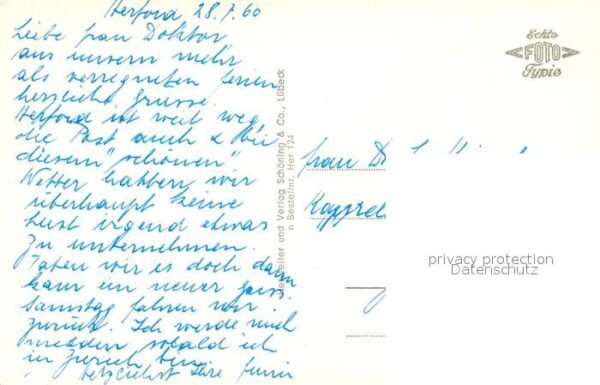 Herford 28.7.60
Liebe Frau Doktor
aus unserm mehr
als verregneten ferien
herzliche Grüsse.
Herford ist weit weg
die Post auch & bei
diesem "schönen"
Wetter habben wir
überhaupt keine
Lust irgend etwas
zu unternehmen.
wir es doch dann
kaum ein neuer
Samstag fahren wir
zurück. Ich werde mich
melden sobald ich
in Zürich bin.
herzlichst Ihre
Echte
FOTO
Typie
Hersteller und Verlag Schöning & Co., Lübeck
n Bestellnr. Her 124
Frau D
privacy protection
Datenschutz